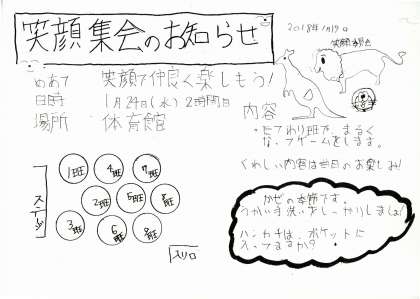 笑顔集会のお知らせ
2018年1月19日
笑顔委員会
めあて 笑顔で仲良く楽しもう!
日時 1月24日(水)2時間目
場所 体育館
内容
・たてわり班で、まるく
なってゲームをします。
くわしい内容は当日のお楽しみ!
ステージ
1班 4班 7班
2班 5班
3班 6班 8班
入り口
かぜの季節です。
うがい手洗いをしっかりしましょう!
ハンカチは、ポケットに
入ってますか?